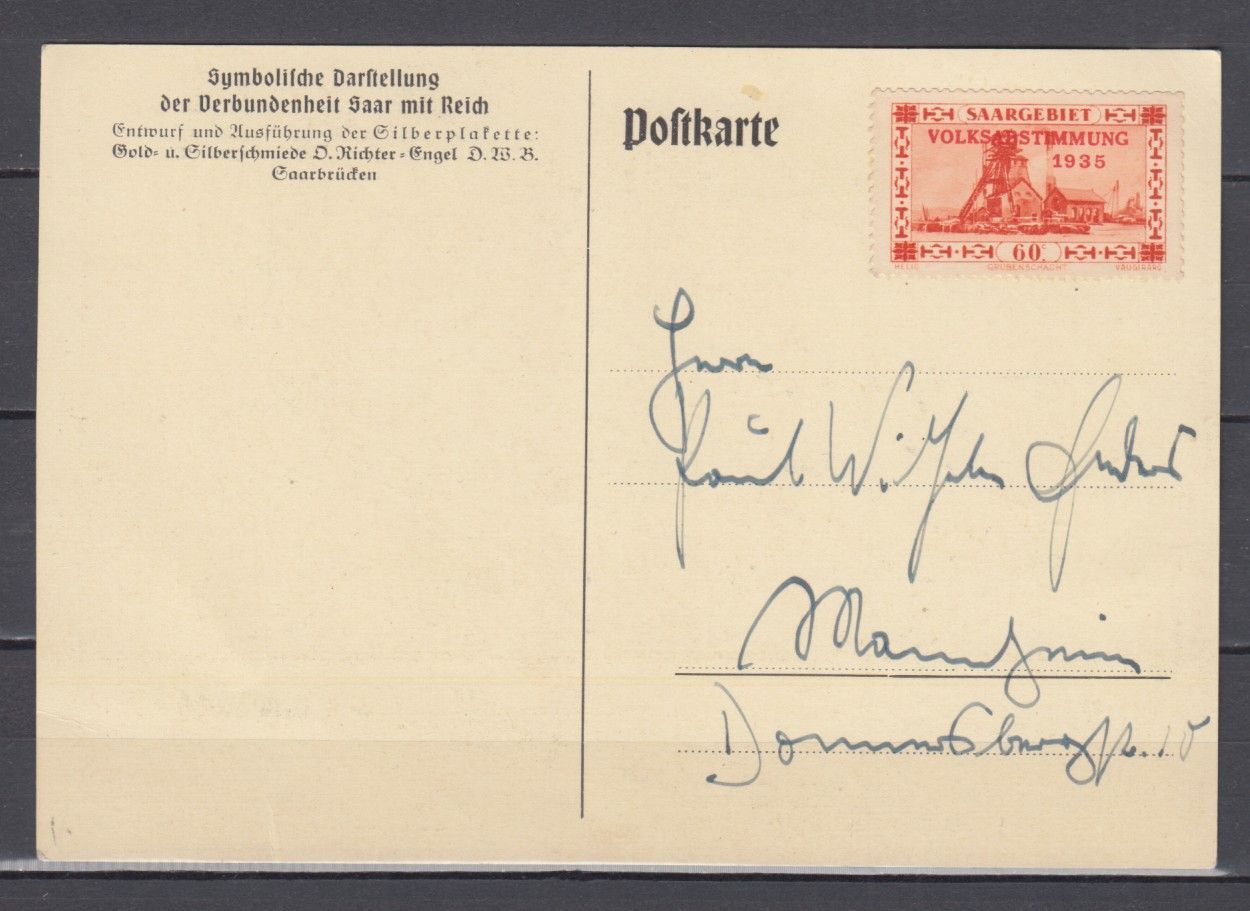 Symbolische Darstellung
der Verbundenheit Saar mit Reich
Entwurf und Ausführung der Silberplakette:
Gold- u. Silberschmiede O. Richter-Engel D. W. B.
Saarbrücken
Postkarte
SAARGEBIET
VOLKSABSTIMMUNG
1935
60 c.
HELIO GRUBENSCHACHT VAUGIRARD
Herrn
Paul Wilhelm
Mannheim
Donnersbergstr. 10